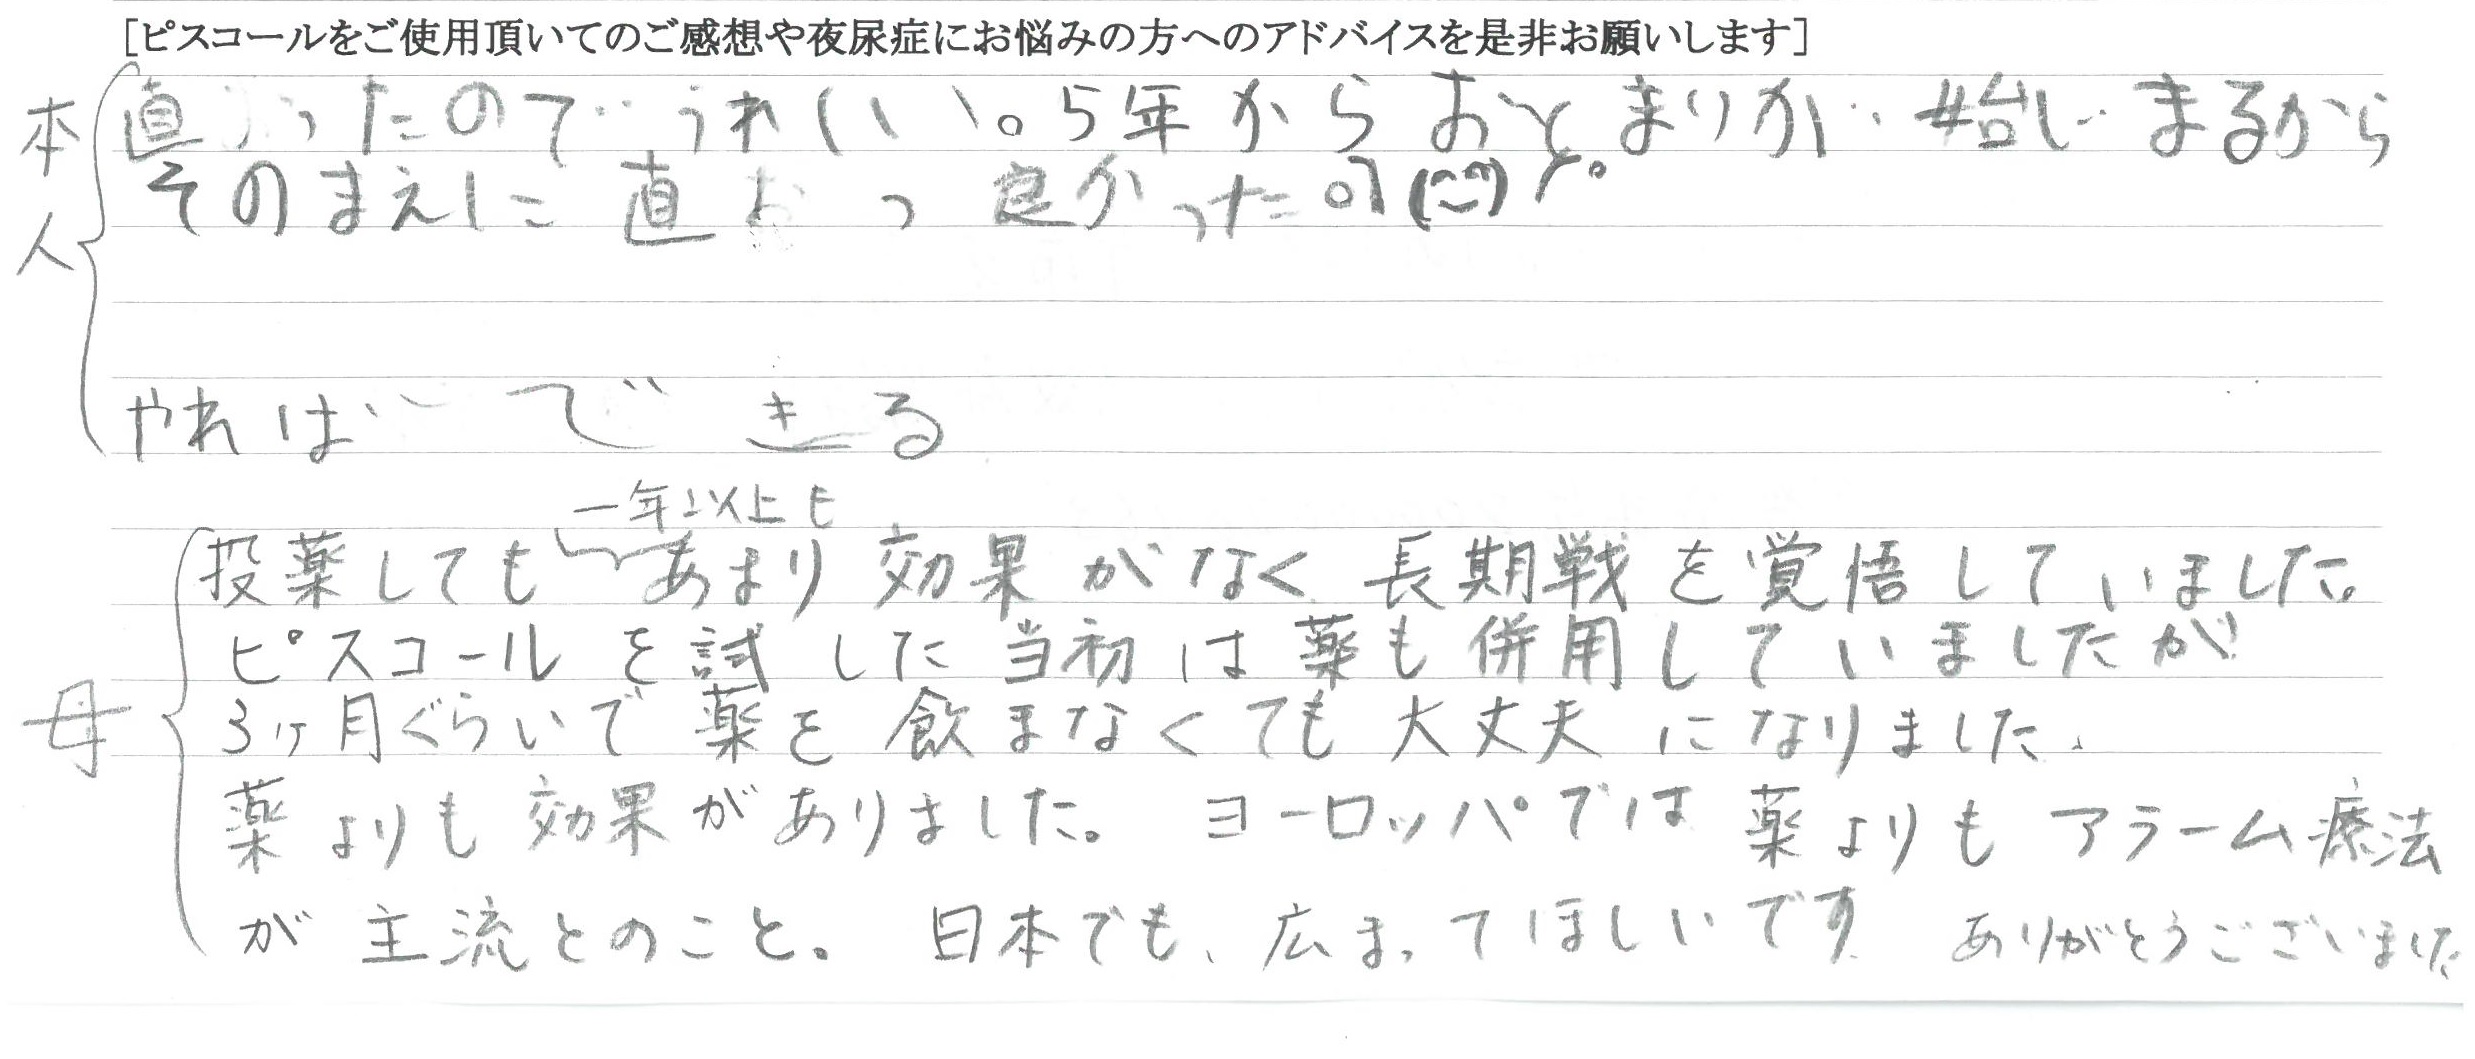 [ピスコールをご使用頂いてのご感想や夜尿症にお悩みの方へのアドバイスを是非お願いします]
本人
直ったのでうれしい。5年からおとまりが始じまるから
そのまえに直 っ 良かった
やればできる
母
一年以上も
投薬してもあまり効果がなく長期戦を覚悟していました。
ピスコールを試した当初は薬も併用していましたが
3ヶ月ぐらいで薬を飲まなくても大丈夫になりました。
薬よりも効果がありました。ヨーロッパでは薬よりもアラーム療法
が主流とのこと。日本でも、広まってほしいです ありがとうございました